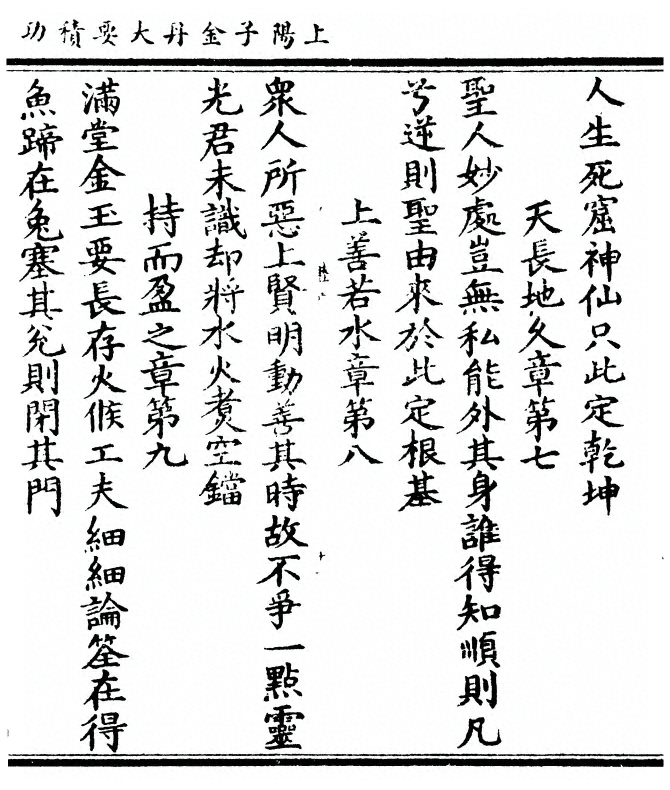 上陽子金丹大要積功
人生死窟神仙只此定乾坤
天長地久章第七
聖人妙處豈無私能外其身誰得知順則凡
兮逆則聖由來於此定根基
上善若水章第八
衆人所惡上賢明動善其時故不爭一點靈
光君未識却將水火煑空鐺
持而盈之章第九
滿堂金玉要長存火候工夫細細論筌在得
魚蹄在兔塞其兊則閉其門